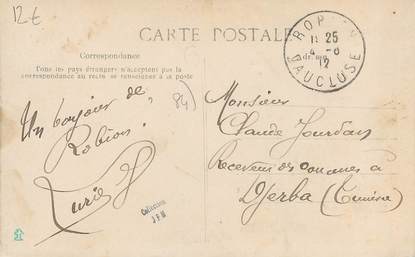 12€
CARTE POSTALE
Correspondance
Tous les pays étrangers n'acceptent pas la
correspondance au recto se renseigner à la poste
Un bonjour de
Robion
84
Collection
J F M
11 25
4 - 8
12
VAUCLUSE
Monsieur
Claude Jourdan
Receveur des Douanes à
Djerba (Tunisie)